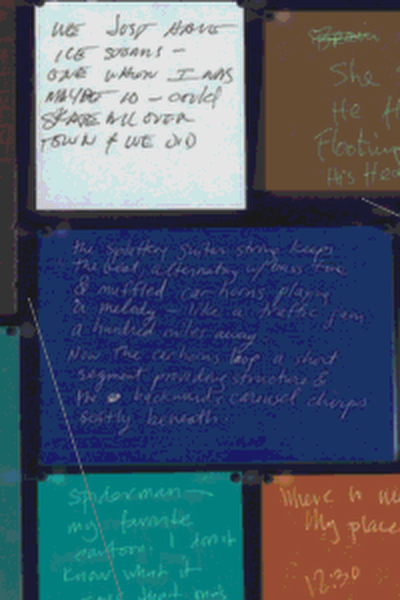 WE JUST HAVE
ICE STORMS –
ONE WHEN I WAS
MAYBE 10 – could
SKATE ALL OVER
TOWN & WE DID
She
He
Floating
His Hea
the spluttery guitar string keeps
the beat, alternating w/ bass tone
& muffled car horns playing
a melody – like a traffic jam
a hundred miles away
Now the car horns loop a short
segment providing structure &
the backwards carousel chirps
softly beneath.
Spiderman –
my favorite
cartoon. I don't
know what it
Where is
My place
12:30